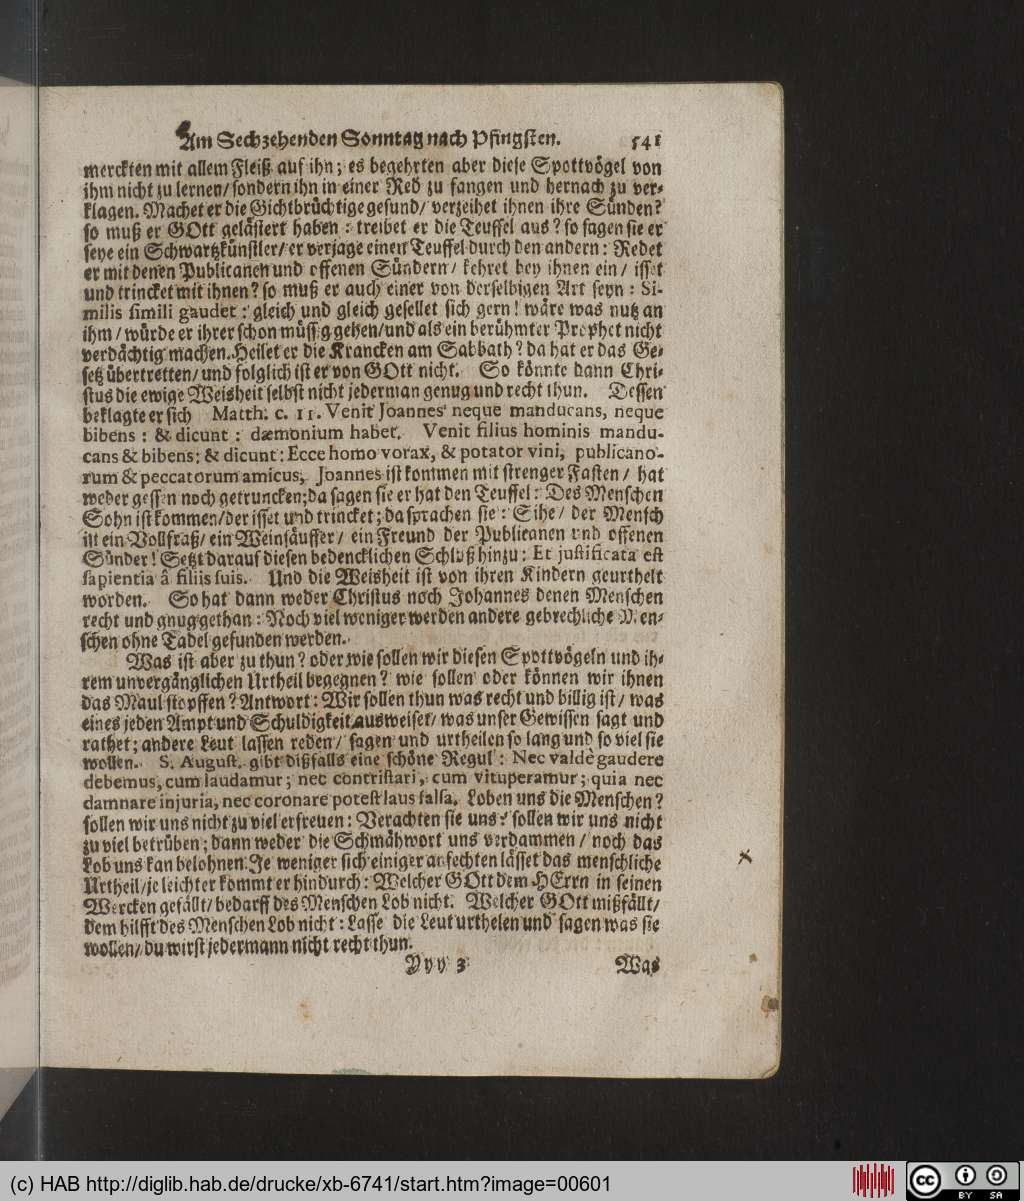 Am Sechzehenden Sonntag nach Pfingsten. 541
merckten mit allem Fleiß auf ihn; es begehrten aber diese Spottvögel von
ihm nicht zu lernen/ sondern ihn in einer Red zu fangen und hernach zu ver-
klagen. Machet er die Gichtbrüchtige gesund/ verzeihet ihnen ihre Sünden?
so muß er GOtt gelästert haben: treibet er die Teuffel aus? so sagen sie er
seye ein Schwartzkünstler/ er verjage einen Teuffel durch den andern: Redet
er mit denen Publicanen und offenen Sündern/ kehret bey ihnen ein/ isset
und trincket mit ihnen? so muß er auch einer von derselbigen Art seyn: Si-
milis simili gaudet: gleich und gleich gesellet sich gern! wäre was nutz an
ihm/ würde er ihrer schon müssig gehen/ und als ein berühmter Prophet nicht
verdächtig machen. Heilet er die Krancken am Sabbath? da hat er das Ge-
setz übertretten/ und folglich ist er von GOtt nicht. So könnte dann Chri-
stus die ewige Weisheit selbst nicht jederman genug und recht thun. Dessen
beklagte er sich Matth. c. 11. Venit Joannes neque manducans, neque
bibens: & dicunt: dæmonium habet. Venit filius hominis mandu-
cans & bibens; & dicunt: Ecce homo vorax, & potator vini, publicano-
rum & peccatorum amicus, Joannes ist kommen mit strenger Fasten/ hat
weder gessen noch getruncken; da sagen sie er hat den Teuffel: Des Menschen
Sohn ist kommen/ der isset und trincket; da sprachen sie: Sihe/ der Mensch
ist ein Vollfraß/ ein Weinsäuffer/ ein Freund der Publicanen und offenen
Sünder! Setzt darauf diesen bedencklichen Schluß hinzu: Et justificata est
sapientia â filiis suis. Und die Weisheit ist von ihren Kindern geurthelt
worden. So hat dann weder Christus noch Johannes denen Menschen
recht und gnug gethan: Noch viel weniger werden andere gebrechliche Men-
schen ohne Tadel gefunden werden.
Was ist aber zu thun? oder wie sollen wir diesen Spottvögeln und ih-
rem unvergänglichen Urtheil begegnen? wie sollen oder können wir ihnen
das Maul stopffen? Antwort: Wir sollen thun was recht und billig ist/ was
eines jeden Ampt und Schuldigkeit ausweiset/ was unser Gewissen sagt und
rathet; andere Leut lassen reden/ sagen und urtheilen so lang und so viel sie
wollen. S. August. gibt dißfalls eine schöne Regul: Nec valdè gaudere
debemus, cum laudamur; nec contristari, cum vituperamur; quia nec
damnare injuria, nec coronare potest laus falsa. Loben uns die Menschen?
sollen wir uns nicht zu viel erfreuen: Verachten sie uns? sollen wir uns nicht
zu viel betrüben; dann weder die Schmähwort uns verdammen/ noch das
Lob uns kan belohnen. Je weniger sich einiger anfechten lässet das menschliche
Urtheil/ je leichter kommt er hindurch: Welcher GOtt dem HErrn in seinen
Wercken gefällt/ bedarff des Menschen Lob nicht. Welcher GOtt mißfällt/
dem hilfft des Menschen Lob nicht: Lasse die Leut urthelen und sagen was sie
wollen/ du wirst jedermann nicht recht thun.
Yyy 3 Was
(c) HAB http://diglib.hab.de/drucke/xb-6741/start.htm?image=00601
cc BY SA